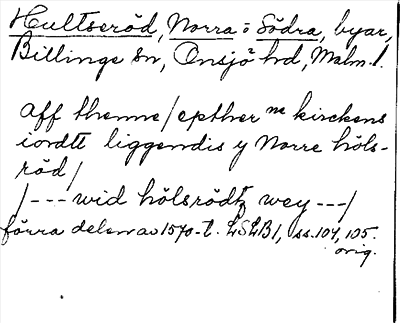 Hultseröd, Norra o Södra, byar,
Billinge sn, Onsjö hd, Malm. l.
aff thenne / epther ne kirckens
iordtt liggendis y Norre höls-
röd /
/ --- wid hölsrödtz wey --- /
förra delen av 1570-t. LSLB 1, ss. 104, 105.
orig.